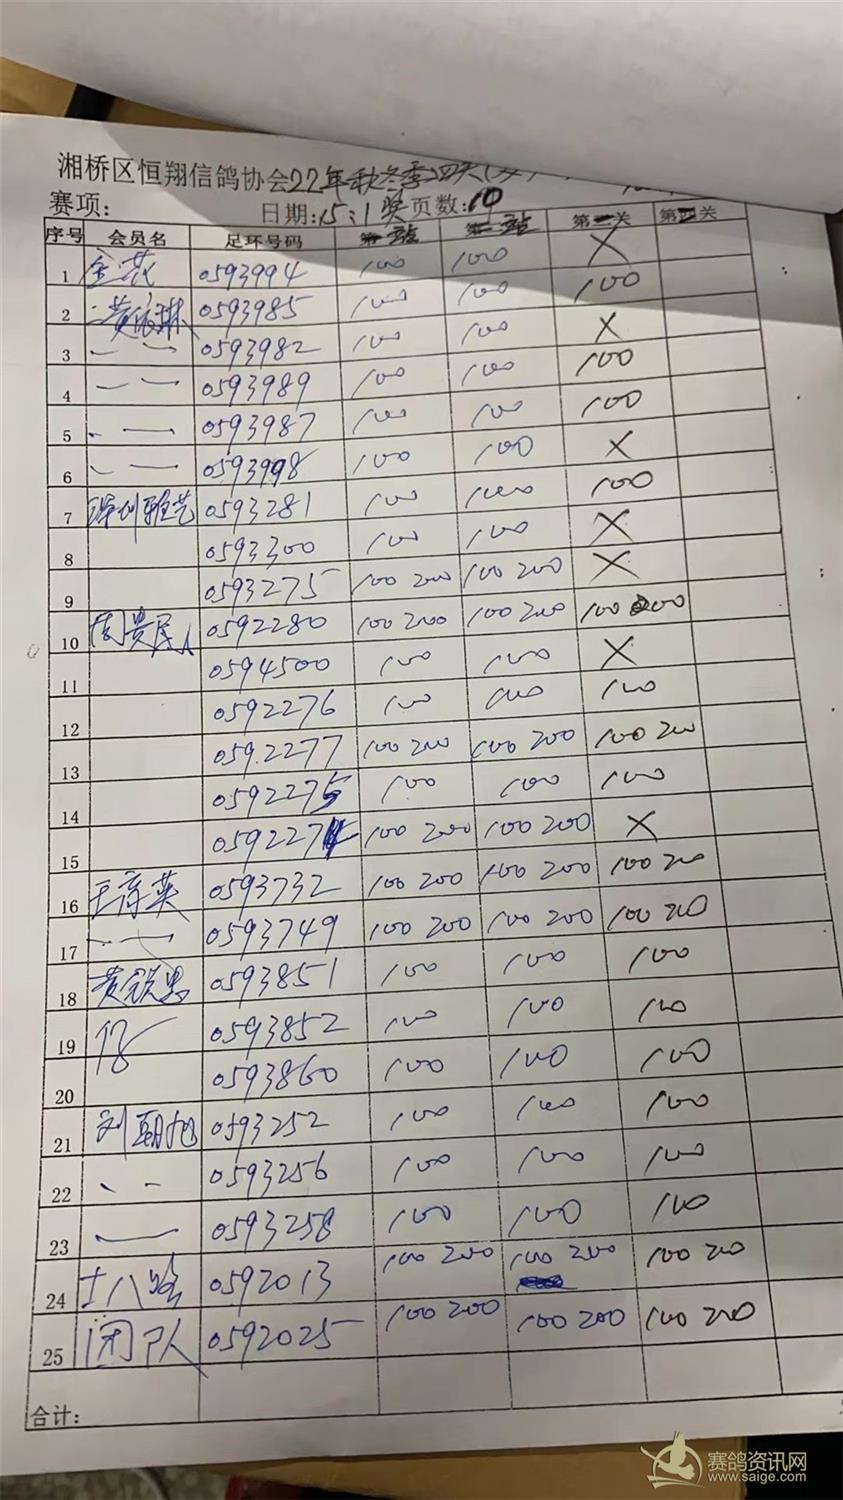 湘桥区恒翔信鸽协会22年秋冬季四关
赛项: 日期:15:1奖页数:10
序号 会员名 足环号码 第一站 第二站 第一关 第四关
1 金花 0593994 100 100 X
2 黄依琳 0593985 100 100 100
3 〃 0593982 100 100 X
4 〃 0593989 100 100 100
5 〃 0593987 100 100 100
6 〃 0593998 100 100 X
7 深圳雅艺 0593281 100 100 100
8 0593300 100 100 X
9 0593275 100 200 100 200 X
10 周贵尾 0592280 100 200 100 200 100 200
11 0594500 100 100 X
12 0592276 100 100 100
13 0592277 100 200 100 200 100 200
14 0592275 100 100 100
15 0592274 100 200 100 200 X
16 0593732 100 200 100 200 100 200
17 〃 0593749 100 200 100 200 100 200
18 0593851 100 100 100
19 0593852 100 100 100
20 0593860 100 100 100
21 刘朝旭 0593252 100 100 100
22 〃 0593256 100 100 100
23 〃 0593258 100 100 100
24 十八哈 0592013 100 200 100 200 100 200
25 团队 0592025 100 200 100 200 100 200
合计:
赛鸽资讯网
www.saige.com